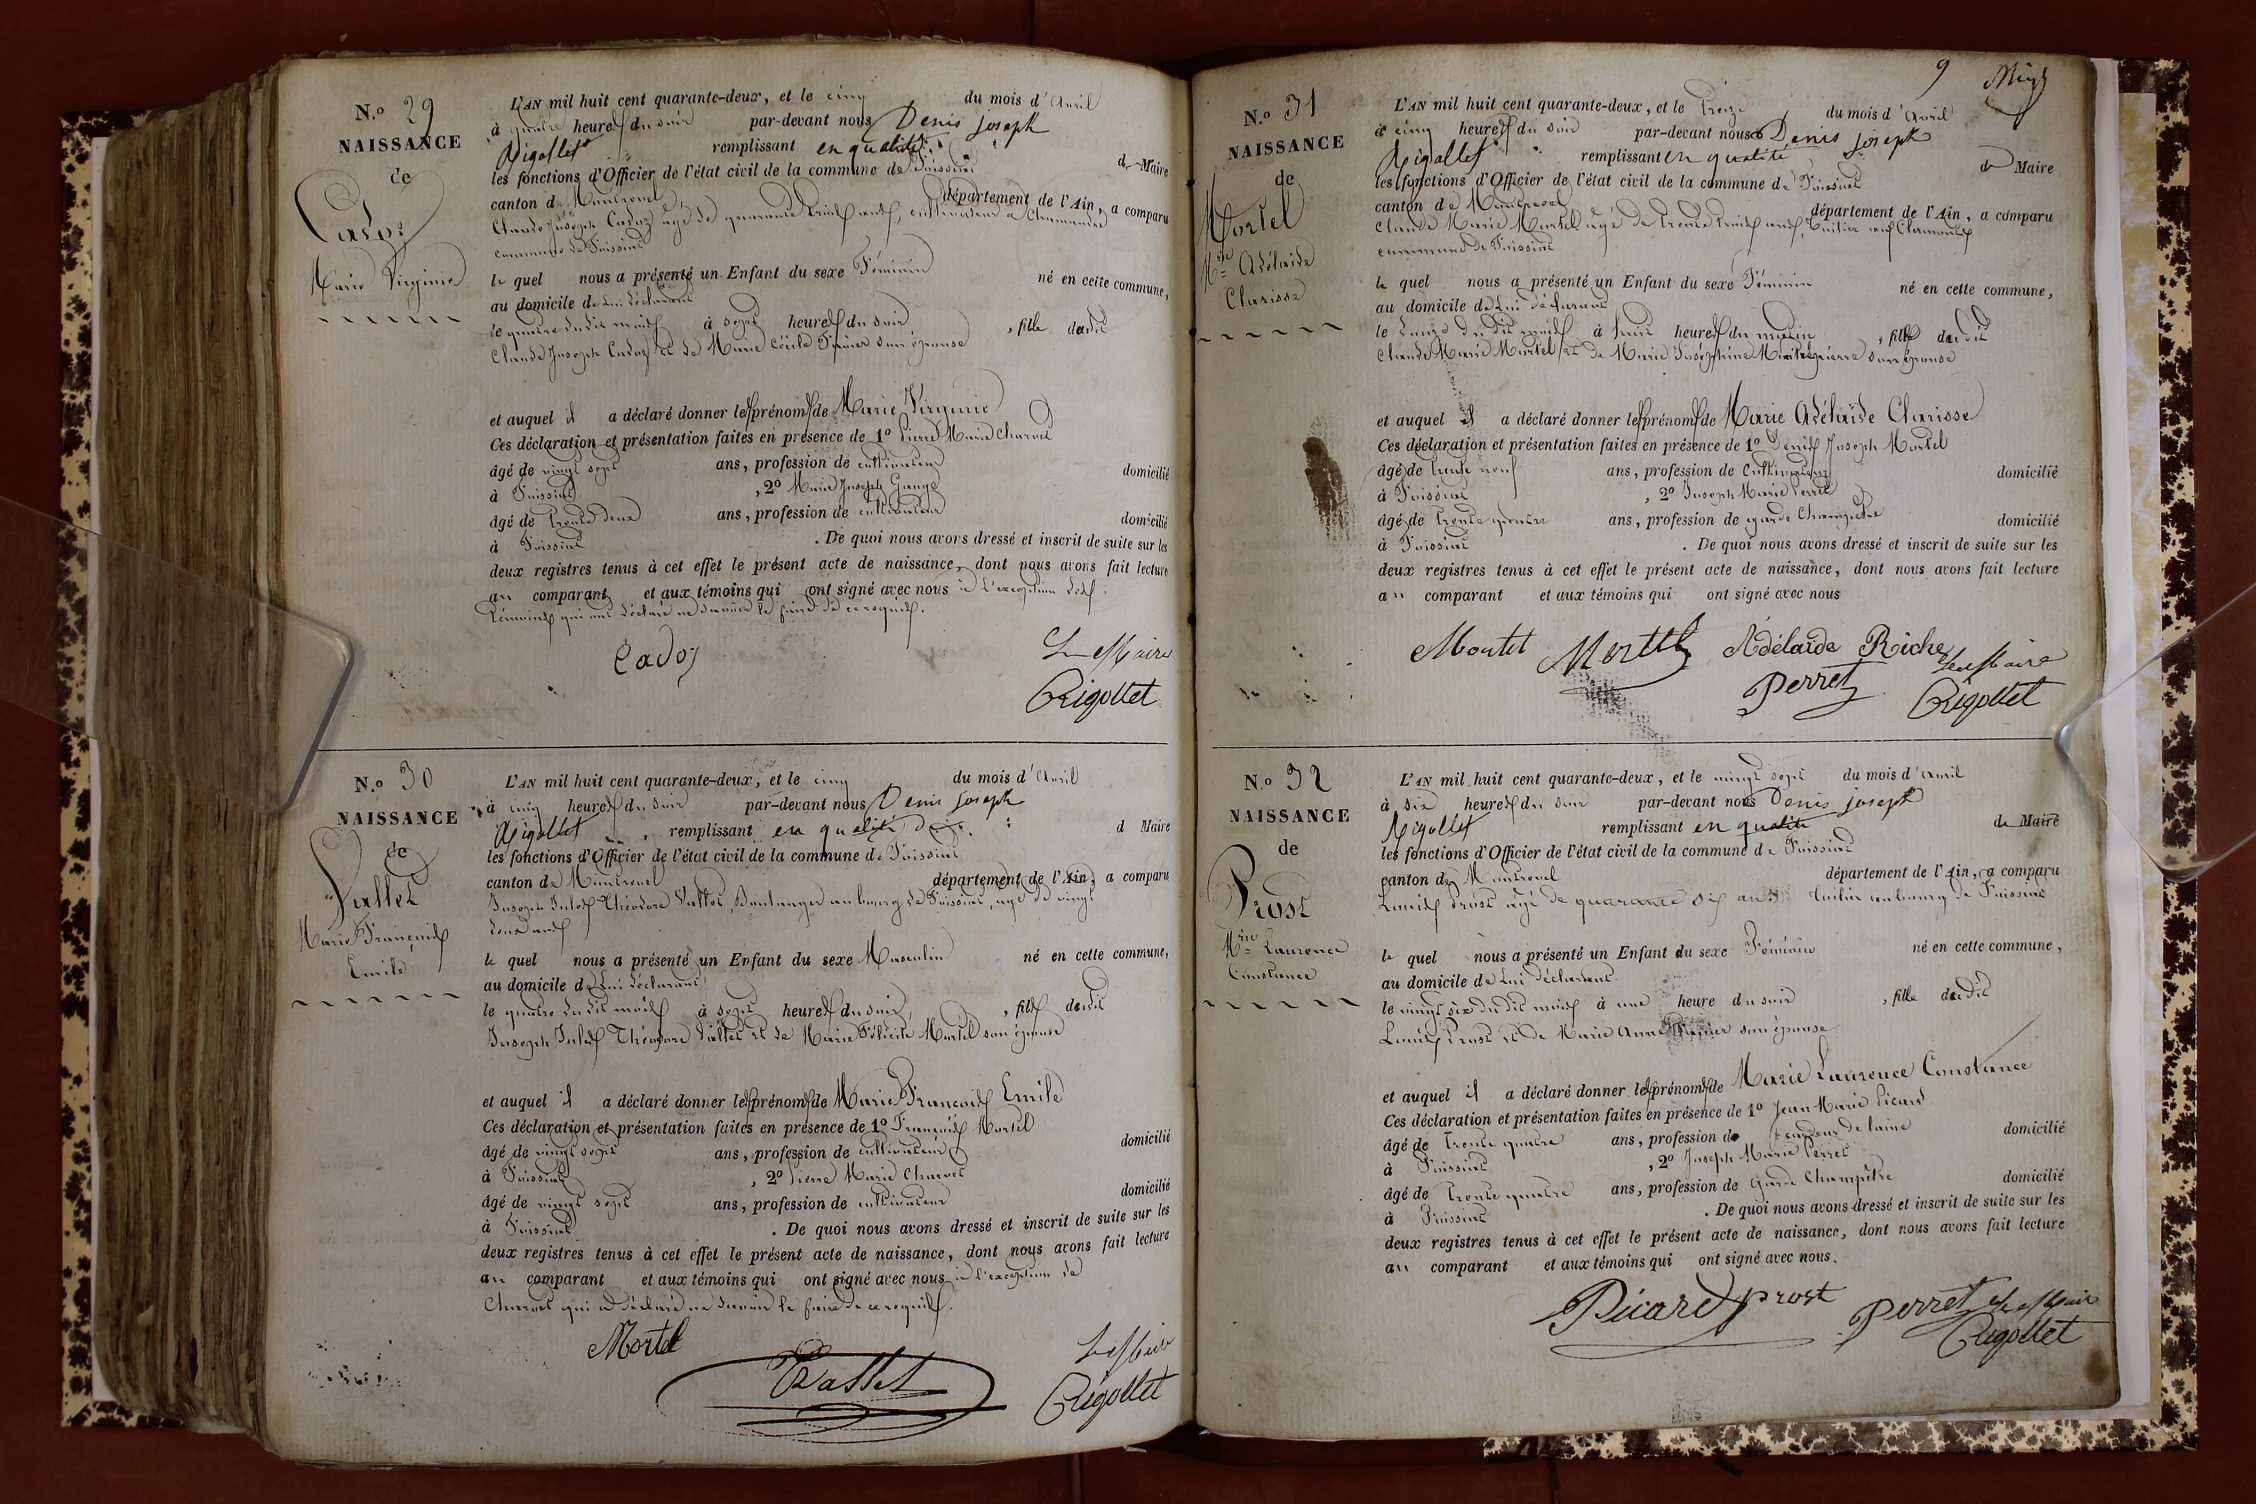 N.o 29
NAISSANCE
de
Cadoz
Marie Virginie
L'AN mil huit cent quarante-deux, et le cinq du mois d'Avril
à quatre heures du soir par-devant nous Denis joseph
Rigollet remplissant en qualité de Maire
les fonctions d'Officier de l'état civil de la commune de Foissiat
canton de Montrevel département de l'Ain, a comparu
Claude Joseph Cadoz agé de quarante ans, cultivateur à
commune de Foissiat
le quel nous a présenté un Enfant du sexe Féminin né en cette commune,
au domicile de Lui déclarant
le quatre du dit mois à sept heures du soir, fille du dit
Claude Joseph Cadoz et de Marie Cécile son épouse
et auquel il a déclaré donner les prénoms de Marie Virginie
Ces déclaration et présentation faites en présence de 1o Pierre Marie Charvet
âgé de vingt sept ans, profession de cultivateur domicilié
à Foissiat, 2o Marie Joseph
âgé de trente deux ans, profession de cultivateur domicilié
à Foissiat. De quoi nous avons dressé et inscrit de suite sur les
deux registres tenus à cet effet le présent acte de naissance, dont nous avons fait lecture
au comparant et aux témoins qui ont signé avec nous à l'exception des
témoins qui ont déclaré ne savoir le faire de ce requis.
Cadoz
Le Maire
Rigollet
N.o 30
NAISSANCE
de
Vallet
Marie François
Emile
L'AN mil huit cent quarante-deux, et le cinq du mois d'Avril
à cinq heures du soir par-devant nous Denis joseph
Rigollet remplissant en qualité de d Maire
les fonctions d'Officier de l'état civil de la commune de Foissiat
canton de Montrevel département de l'Ain, a comparu
Joseph Jules Théodore Vallet, Boulanger au bourg de Foissiat, agé de vingt
deux ans
le quel nous a présenté un Enfant du sexe Masculin né en cette commune,
au domicile de Lui déclarant
le quatre du dit mois à sept heures du soir, fils du dit
Joseph Jules Théodore Vallet et de Marie Félicité Mortel son épouse
et auquel il a déclaré donner les prénoms de Marie François Emile
Ces déclaration et présentation faites en présence de 1o François Mortel
âgé de vingt sept ans, profession de cultivateur domicilié
à Foissiat, 2o Pierre Marie Charvet
âgé de vingt sept ans, profession de cultivateur domicilié
à Foissiat. De quoi nous avons dressé et inscrit de suite sur les
deux registres tenus à cet effet le présent acte de naissance, dont nous avons fait lecture
au comparant et aux témoins qui ont signé avec nous à l'exception de
Charvet qui a déclaré ne savoir le faire de ce requis.
Mortel
Vallet
Le Maire
Rigollet
9
N.o 31
NAISSANCE
de
Mortel
Mie Adélaide
Clarisse
L'AN mil huit cent quarante-deux, et le treize du mois d'Avril
à cinq heures du soir par-devant nous Denis joseph
Rigollet remplissant en qualité de Maire
les fonctions d'Officier de l'état civil de la commune de Foissiat
canton de Montrevel département de l'Ain, a comparu
Claude Marie Mortel agé de trente ans,
commune de Foissiat
le quel nous a présenté un Enfant du sexe Féminin né en cette commune,
au domicile de Lui déclarant
le douze du dit mois à huit heures du matin, fille du dit
Claude Marie Mortel et de Marie Joséphine son épouse
et auquel il a déclaré donner les prénoms de Marie Adélaïde Clarisse
Ces déclaration et présentation faites en présence de 1o Denis Joseph Mortel
âgé de trente neuf ans, profession de cultivateur domicilié
à Foissiat, 2o Joseph Marie Perret
âgé de trente quatre ans, profession de garde Champêtre domicilié
à Foissiat. De quoi nous avons dressé et inscrit de suite sur les
deux registres tenus à cet effet le présent acte de naissance, dont nous avons fait lecture
au comparant et aux témoins qui ont signé avec nous
Mortel Mortel Adélaïde Riche
Perret
Le Maire
Rigollet
N.o 32
NAISSANCE
de
Prost
Mie Laurence
Constance
L'AN mil huit cent quarante-deux, et le vingt sept du mois d'Avril
à six heures du soir par-devant nous Denis joseph
Rigollet remplissant en qualité de Maire
les fonctions d'Officier de l'état civil de la commune de Foissiat
canton de Montrevel département de l'Ain, a comparu
Louis Prost agé de quarante six ans au bourg de Foissiat
le quel nous a présenté un Enfant du sexe Féminin né en cette commune,
au domicile de Lui déclarant
le vingt six du dit mois à une heure du soir, fille du dit
Louis Prost et de Marie Anne son épouse
et auquel il a déclaré donner les prénoms de Marie Laurence Constance
Ces déclaration et présentation faites en présence de 1o Jean Marie Picard
âgé de trente quatre ans, profession de de laine domicilié
à Foissiat, 2o Joseph Marie Perret
âgé de trente quatre ans, profession de Garde Champêtre domicilié
à Foissiat. De quoi nous avons dressé et inscrit de suite sur les
deux registres tenus à cet effet le présent acte de naissance, dont nous avons fait lecture
au comparant et aux témoins qui ont signé avec nous.
Picard Prost Perret Le Maire
Rigollet